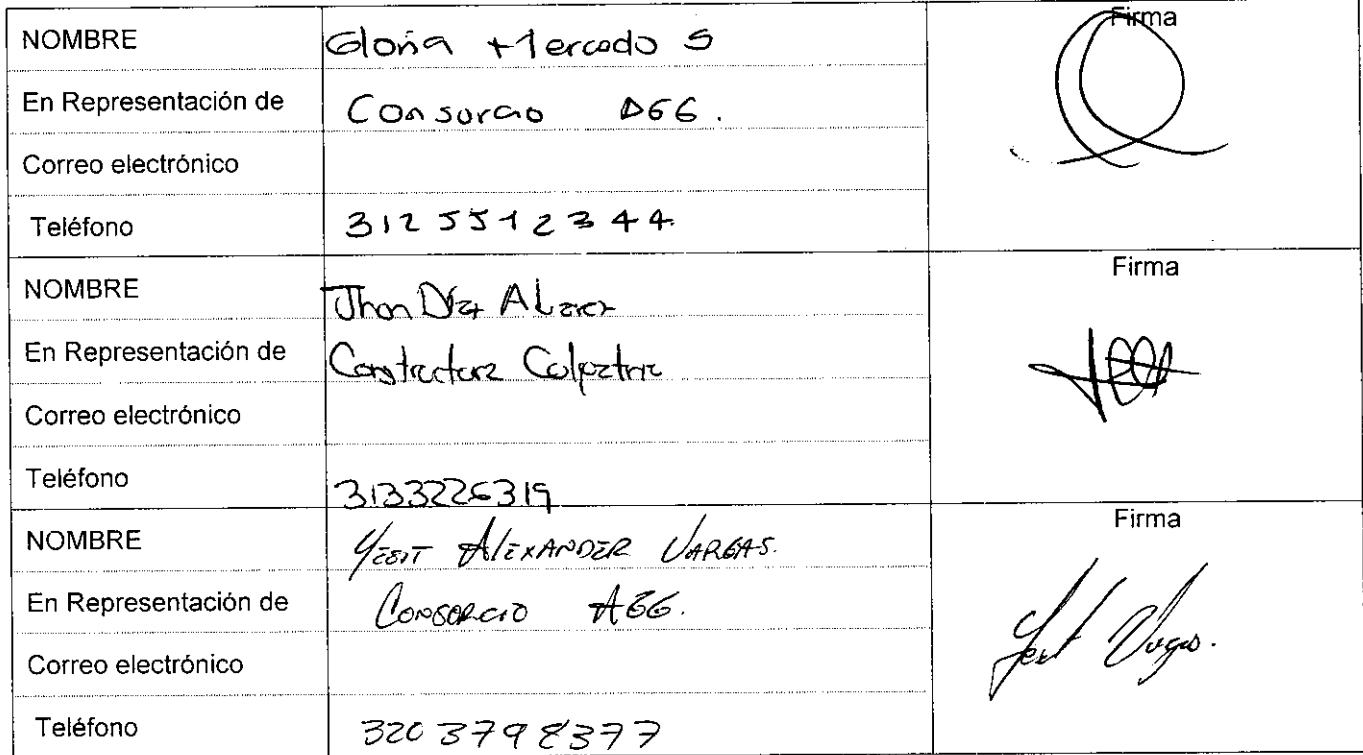 NOMBRE Gloria Mercado S Firma
En Representación de Consorcio
Correo electrónico
Teléfono 3125512344
NOMBRE Jhon Díaz Firma
En Representación de Constructora Colpatria
Correo electrónico
Teléfono 3133226319
NOMBRE YESIT AlExANDER VARGAS. Firma
En Representación de CONSORCIO
Correo electrónico
Teléfono 3203798377